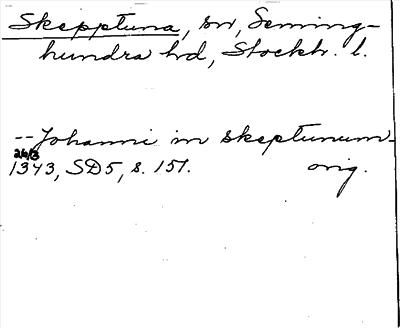 Skepptuna, sn, Seming-
hundra hd, Stockh. l.
-- Johanni in skeptunum-
26/3
1343, SD5, s. 157. orig.